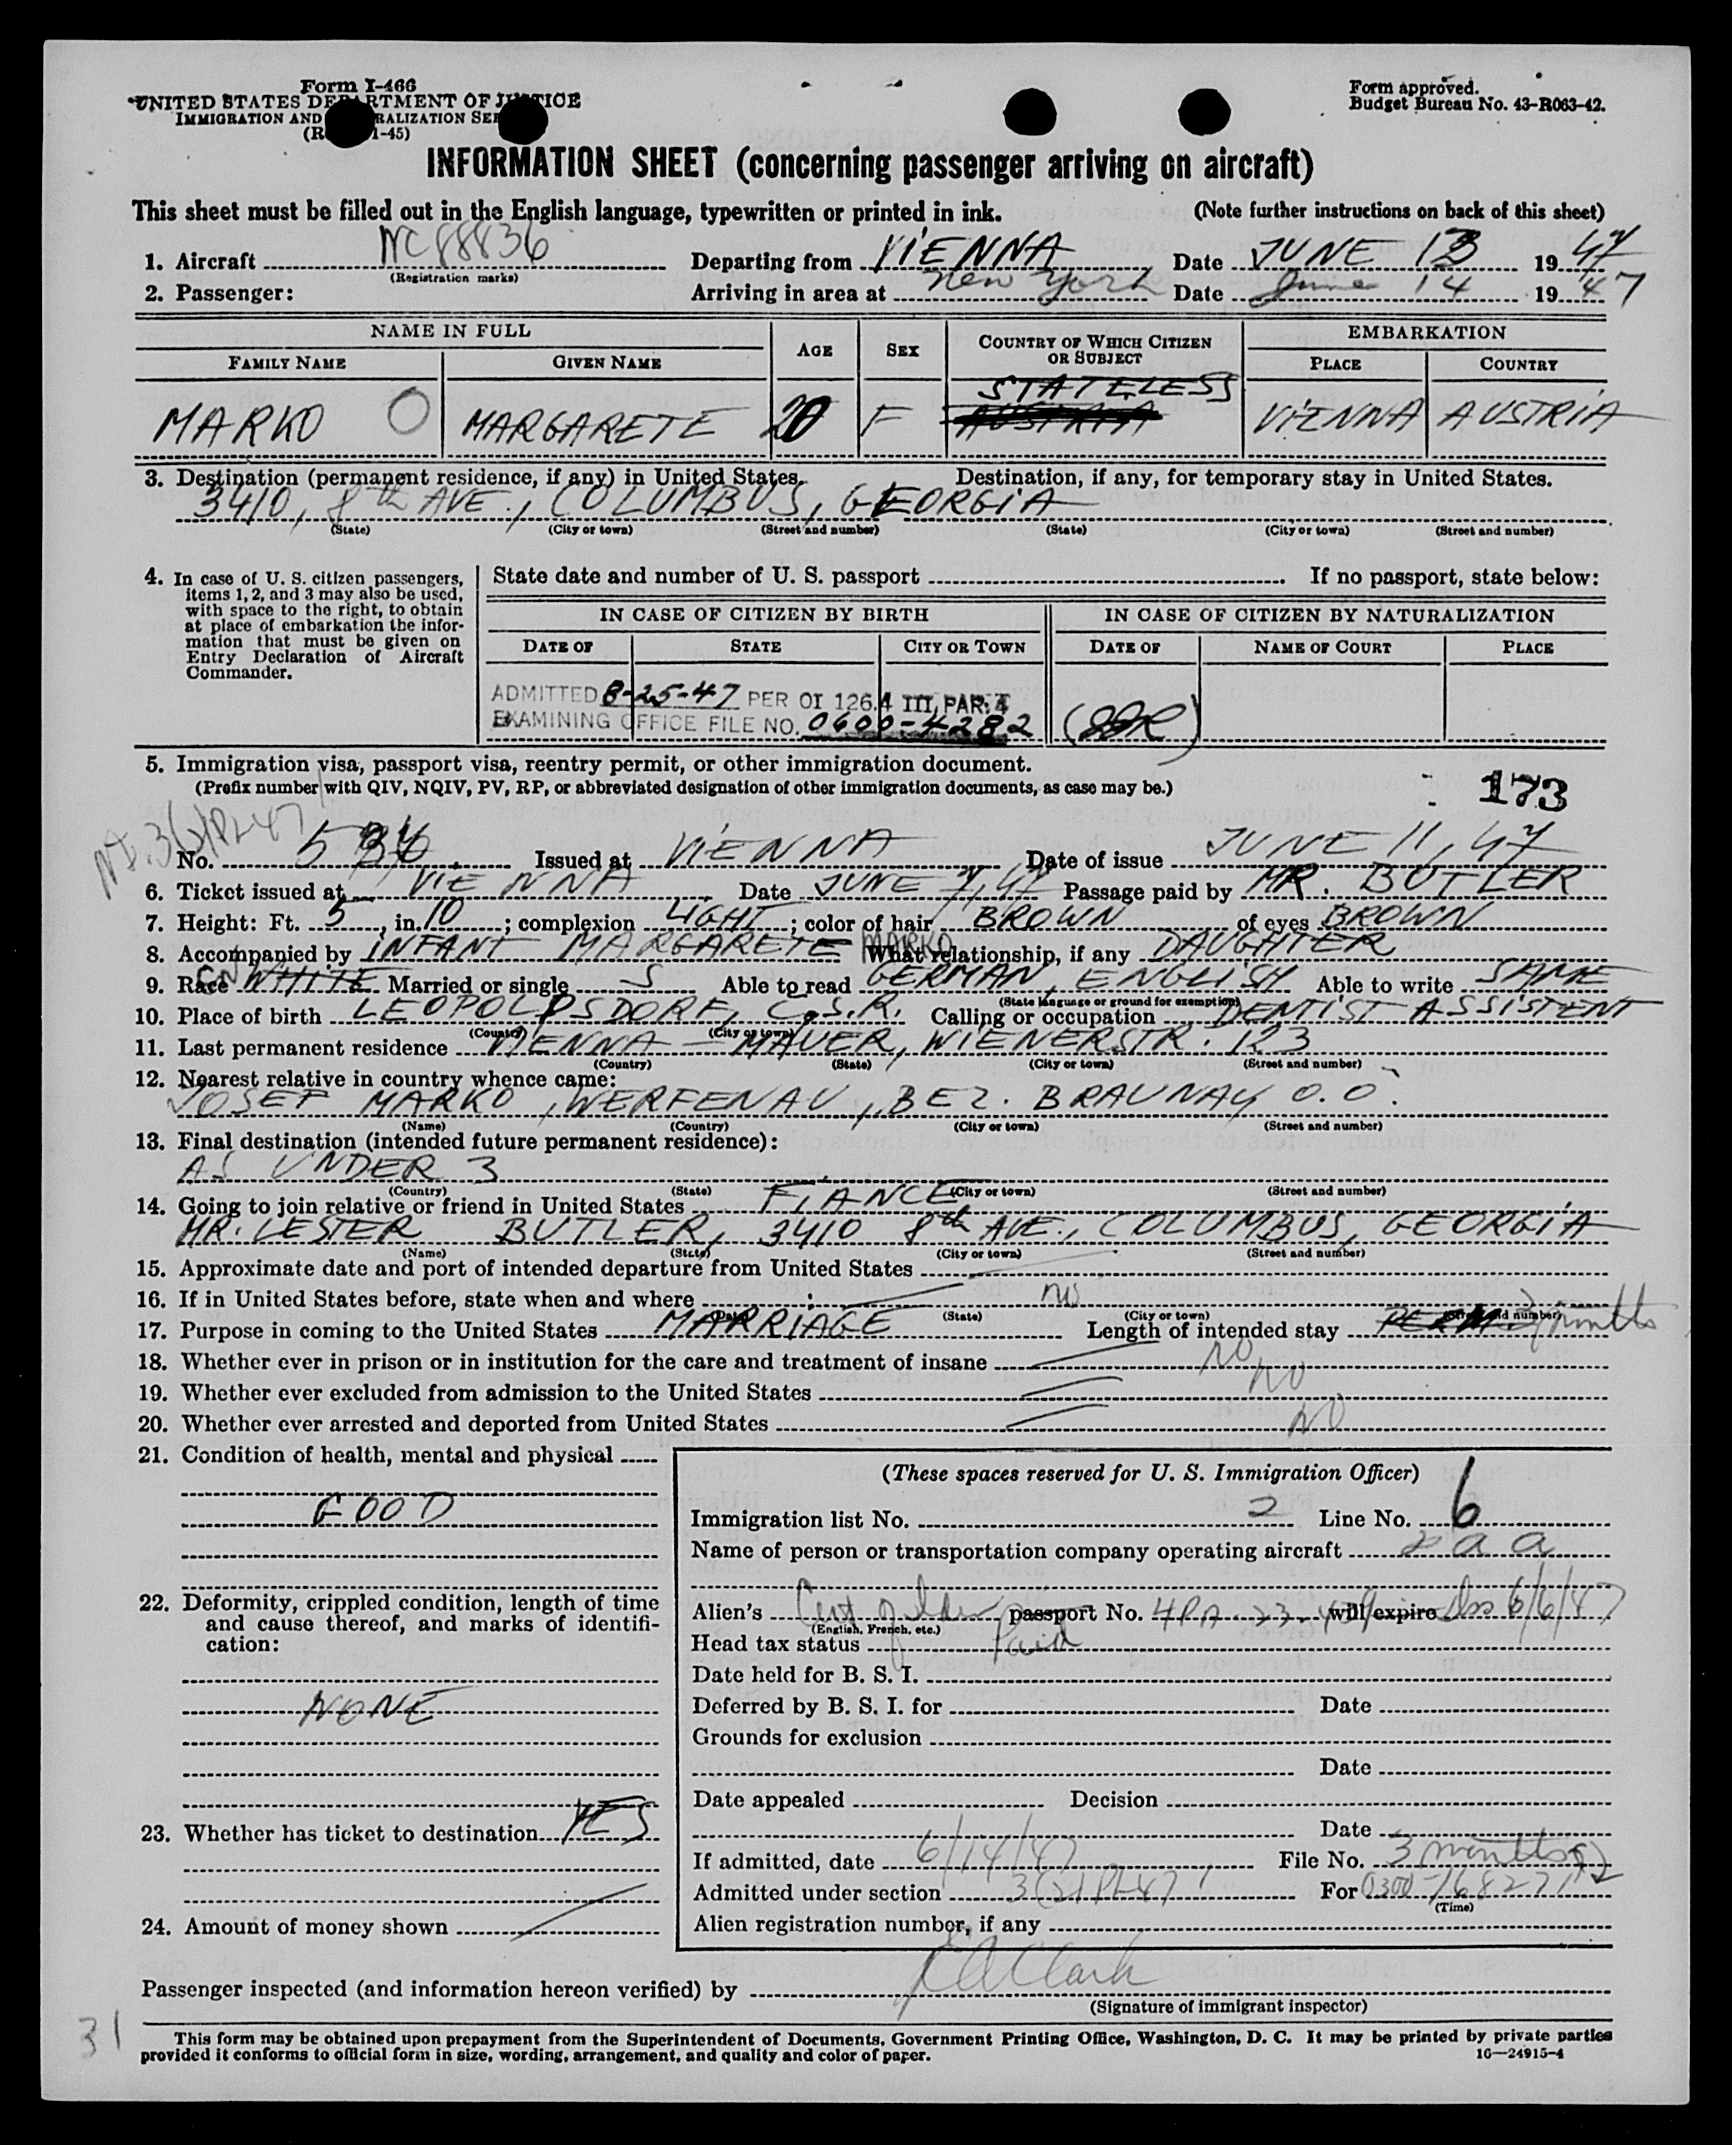 Form I-466
UNITED STATES DEPARTMENT OF JUSTICE
IMMIGRATION AND NATURALIZATION SER
1-45)
Form approved.
Budget Bureau No. 43-R063-42.
INFORMATION SHEET (concerning passenger arriving on aircraft)
This sheet must be filled out in the English language, typewritten or printed in ink. (Note further instructions on back of this sheet)
1. Aircraft NC88836 Departing from VIENNA Date JUNE 13 1947
(Registration marks)
2. Passenger: Arriving in area at New York Date June 14 1947
NAME IN FULL AGE SEX COUNTRY OF WHICH CITIZEN OR SUBJECT EMBARKATION
FAMILY NAME GIVEN NAME PLACE COUNTRY
STATELESS
MARKO MARGARETE 20 F AUSTRIA VIENNA AUSTRIA
3. Destination (permanent residence, if any) in United States. Destination, if any, for temporary stay in United States.
3410, 8th AVE., COLUMBUS, GEORGIA
(State) (City or town) (Street and number) (State) (City or town) (Street and number)
4. In case of U. S. citizen passengers, items 1, 2, and 3 may also be used, with space to the right, to obtain at place of embarkation the information that must be given on Entry Declaration of Aircraft Commander.
State date and number of U. S. passport If no passport, state below:
IN CASE OF CITIZEN BY BIRTH IN CASE OF CITIZEN BY NATURALIZATION
DATE OF STATE CITY OR TOWN DATE OF NAME OF COURT PLACE
ADMITTED 8-25-47 PER OI 126.4 III, PAR. 4
EXAMINING OFFICE FILE NO. 0600-4282
5. Immigration visa, passport visa, reentry permit, or other immigration document.
(Prefix number with QIV, NQIV, PV, RP, or abbreviated designation of other immigration documents, as case may be.)
173
No. 536 Issued at VIENNA Date of issue JUNE 11, 47
6. Ticket issued at VIENNA Date JUNE 7, 47 Passage paid by MR. BUTLER
7. Height: Ft. 5, in. 10; complexion LIGHT; color of hair BROWN of eyes BROWN
8. Accompanied by INFANT MARGARETE MARKO What relationship, if any DAUGHTER
9. Race WHITE Married or single S Able to read GERMAN, ENGLISH Able to write SAME
(State language or ground for exemption)
10. Place of birth LEOPOLDSDORF, C.S.R. Calling or occupation DENTIST ASSISTENT
(Country) (City or town)
11. Last permanent residence VIENNA - MAUER, WIENERSTR. 123
(Country) (State) (City or town) (Street and number)
12. Nearest relative in country whence came:
JOSEF MARKO, WERFENAU, BEZ. BRAUNAU O.Ö.
(Name) (Country) (City or town) (Street and number)
13. Final destination (intended future permanent residence):
AS UNDER 3
(Country) (State) (City or town) (Street and number)
14. Going to join relative or friend in United States FIANCE
MR. LESTER BUTLER, 3410 8th AVE., COLUMBUS, GEORGIA
(Name) (State) (City or town) (Street and number)
15. Approximate date and port of intended departure from United States
16. If in United States before, state when and where no
(State) (City or town) (Street and number)
17. Purpose in coming to the United States MARRIAGE Length of intended stay PERM. 3 months
18. Whether ever in prison or in institution for the care and treatment of insane NO
19. Whether ever excluded from admission to the United States NO
20. Whether ever arrested and deported from United States NO
21. Condition of health, mental and physical
GOOD
22. Deformity, crippled condition, length of time and cause thereof, and marks of identification:
NONE
23. Whether has ticket to destination YES
24. Amount of money shown
(These spaces reserved for U. S. Immigration Officer)
Immigration list No. 2 Line No. 6
Name of person or transportation company operating aircraft P a a
Alien's Cert of Iden passport No. will expire Iss 6/6/47
(English, French, etc.)
Head tax status Paid
Date held for B. S. I.
Deferred by B. S. I. for Date
Grounds for exclusion
Date
Date appealed Decision
Date
If admitted, date 6/14/47 File No. 3 months
Admitted under section 3(2) PL 471 For 0300-76827
(Time)
Alien registration number, if any
Passenger inspected (and information hereon verified) by Clark
(Signature of immigrant inspector)
31
This form may be obtained upon prepayment from the Superintendent of Documents, Government Printing Office, Washington, D. C. It may be printed by private parties
provided it conforms to official form in size, wording, arrangement, and quality and color of paper.
16—24915-4